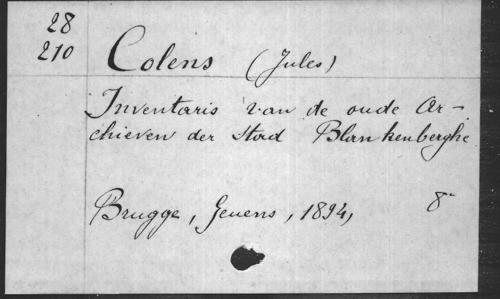 28
210
Colens (Jules)
Inventaris van de oude Ar-
chieven der Stad Blankenberghe
Brugge, Geuens, 1894, 8°